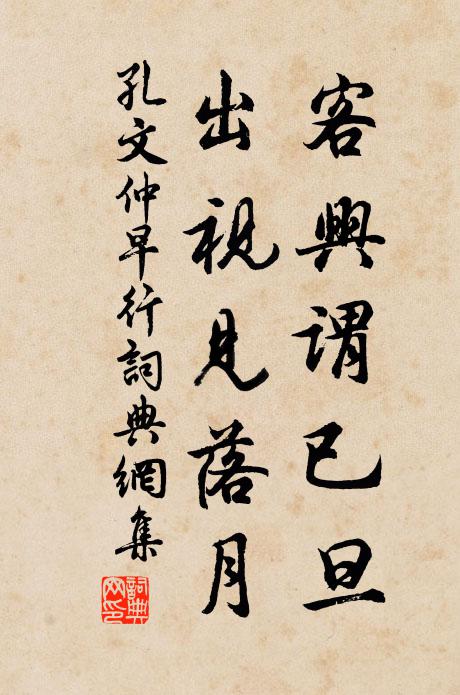 客興謂已旦
出視見落月
孔文仲早行詞典網集
詞典網印